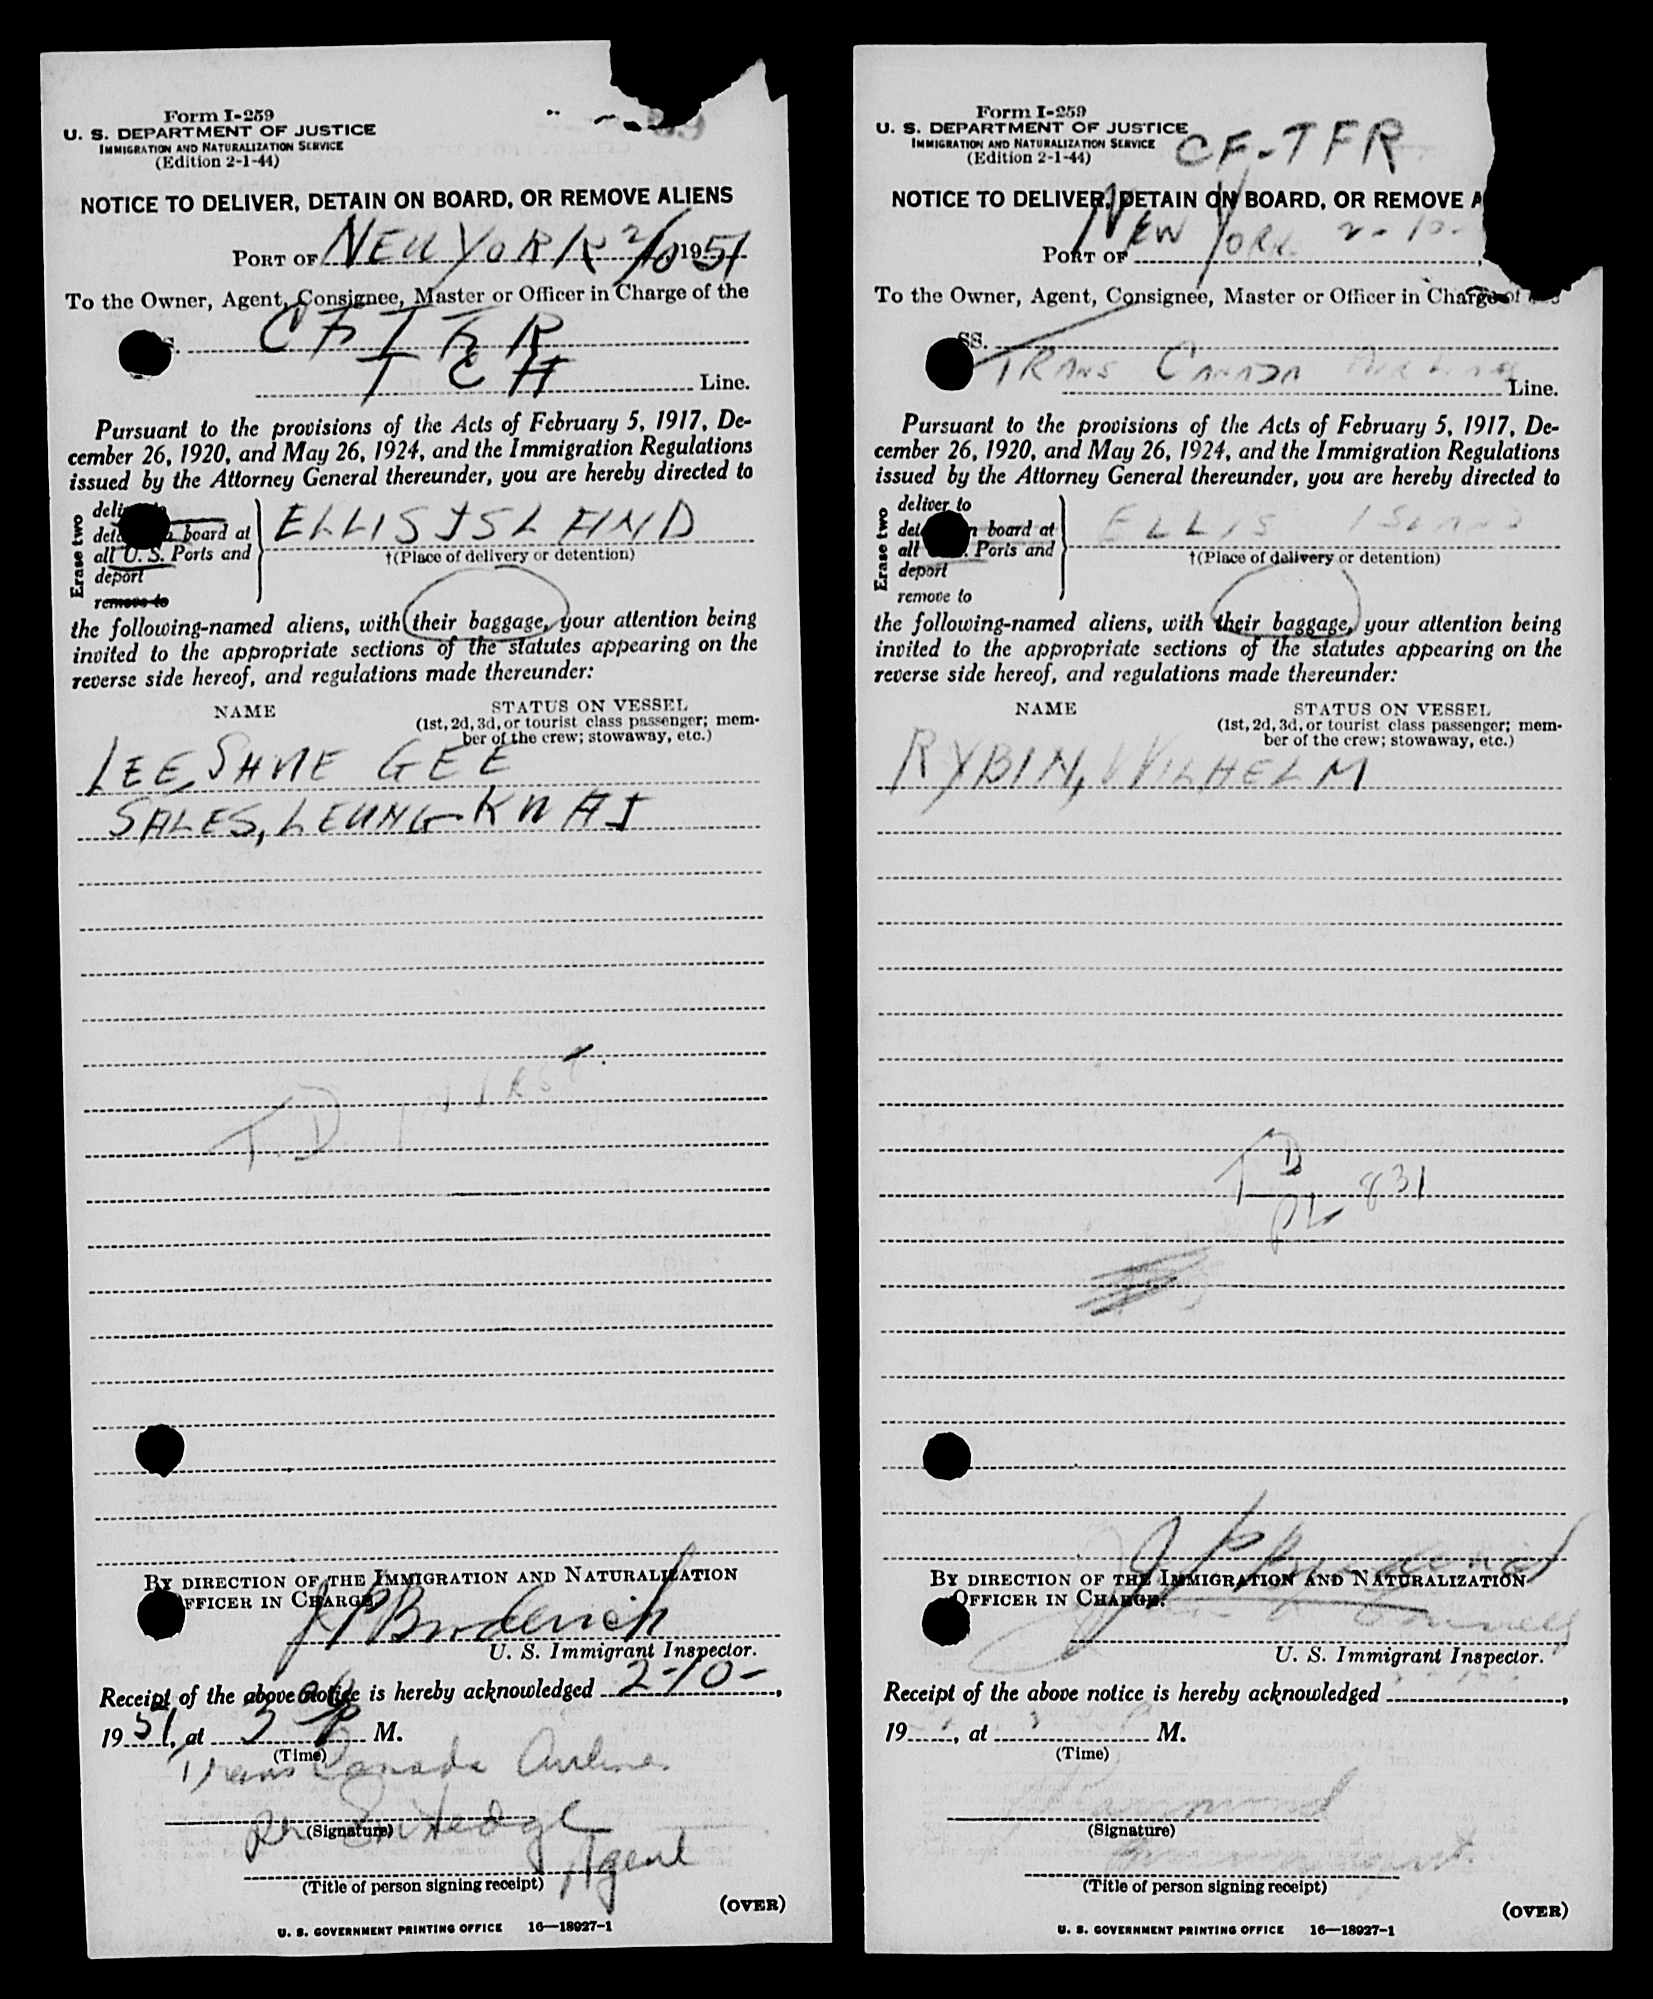 Form I-259
U. S. DEPARTMENT OF JUSTICE
IMMIGRATION AND NATURALIZATION SERVICE
(Edition 2-1-44)
NOTICE TO DELIVER, DETAIN ON BOARD, OR REMOVE ALIENS
PORT OF NEW YORK 2/10 1951
To the Owner, Agent, Consignee, Master or Officer in Charge of the
CF TFR
TCA Line.
Pursuant to the provisions of the Acts of February 5, 1917, De-
cember 26, 1920, and May 26, 1924, and the Immigration Regulations
issued by the Attorney General thereunder, you are hereby directed to
Erase two
board at
all U. S. Ports and
deport
remove to
ELLIS ISLAND
†(Place of delivery or detention)
the following-named aliens, with their baggage, your attention being
invited to the appropriate sections of the statutes appearing on the
reverse side hereof, and regulations made thereunder:
NAME STATUS ON VESSEL
(1st, 2d, 3d, or tourist class passenger; mem-
ber of the crew; stowaway, etc.)
LEE, SHUE GEE
SALES, LEUNG KWAI
T.D.
BY DIRECTION OF THE IMMIGRATION AND NATURALIZATION
OFFICER IN CHARGE
J P Broderick
U. S. Immigrant Inspector.
Receipt of the above notice is hereby acknowledged 2-10-,
1951, at P M.
(Time)
Trans Canada Airlines
per
(Signature)
Agent
(Title of person signing receipt)
(OVER)
U. S. GOVERNMENT PRINTING OFFICE 16—18927-1
Form I-259
U. S. DEPARTMENT OF JUSTICE
IMMIGRATION AND NATURALIZATION SERVICE
(Edition 2-1-44)
CF-TFR
NOTICE TO DELIVER, DETAIN ON BOARD, OR REMOVE A
PORT OF NEW YORK 2-10-
To the Owner, Agent, Consignee, Master or Officer in Charge of
SS.
TRANS CANADA AIR LINES Line.
Pursuant to the provisions of the Acts of February 5, 1917, De-
cember 26, 1920, and May 26, 1924, and the Immigration Regulations
issued by the Attorney General thereunder, you are hereby directed to
Erase two
deliver to
board at
all Ports and
deport
remove to
ELLIS ISLAND
†(Place of delivery or detention)
the following-named aliens, with their baggage, your attention being
invited to the appropriate sections of the statutes appearing on the
reverse side hereof, and regulations made thereunder:
NAME STATUS ON VESSEL
(1st, 2d, 3d, or tourist class passenger; mem-
ber of the crew; stowaway, etc.)
RYBIN, WILHELM
T D
PL 831
J P Broderick
BY DIRECTION OF THE IMMIGRATION AND NATURALIZATION
OFFICER IN CHARGE.
U. S. Immigrant Inspector.
Receipt of the above notice is hereby acknowledged ,
19 , at M.
(Time)
(Signature)
(Title of person signing receipt)
(OVER)
U. S. GOVERNMENT PRINTING OFFICE 16—18927-1